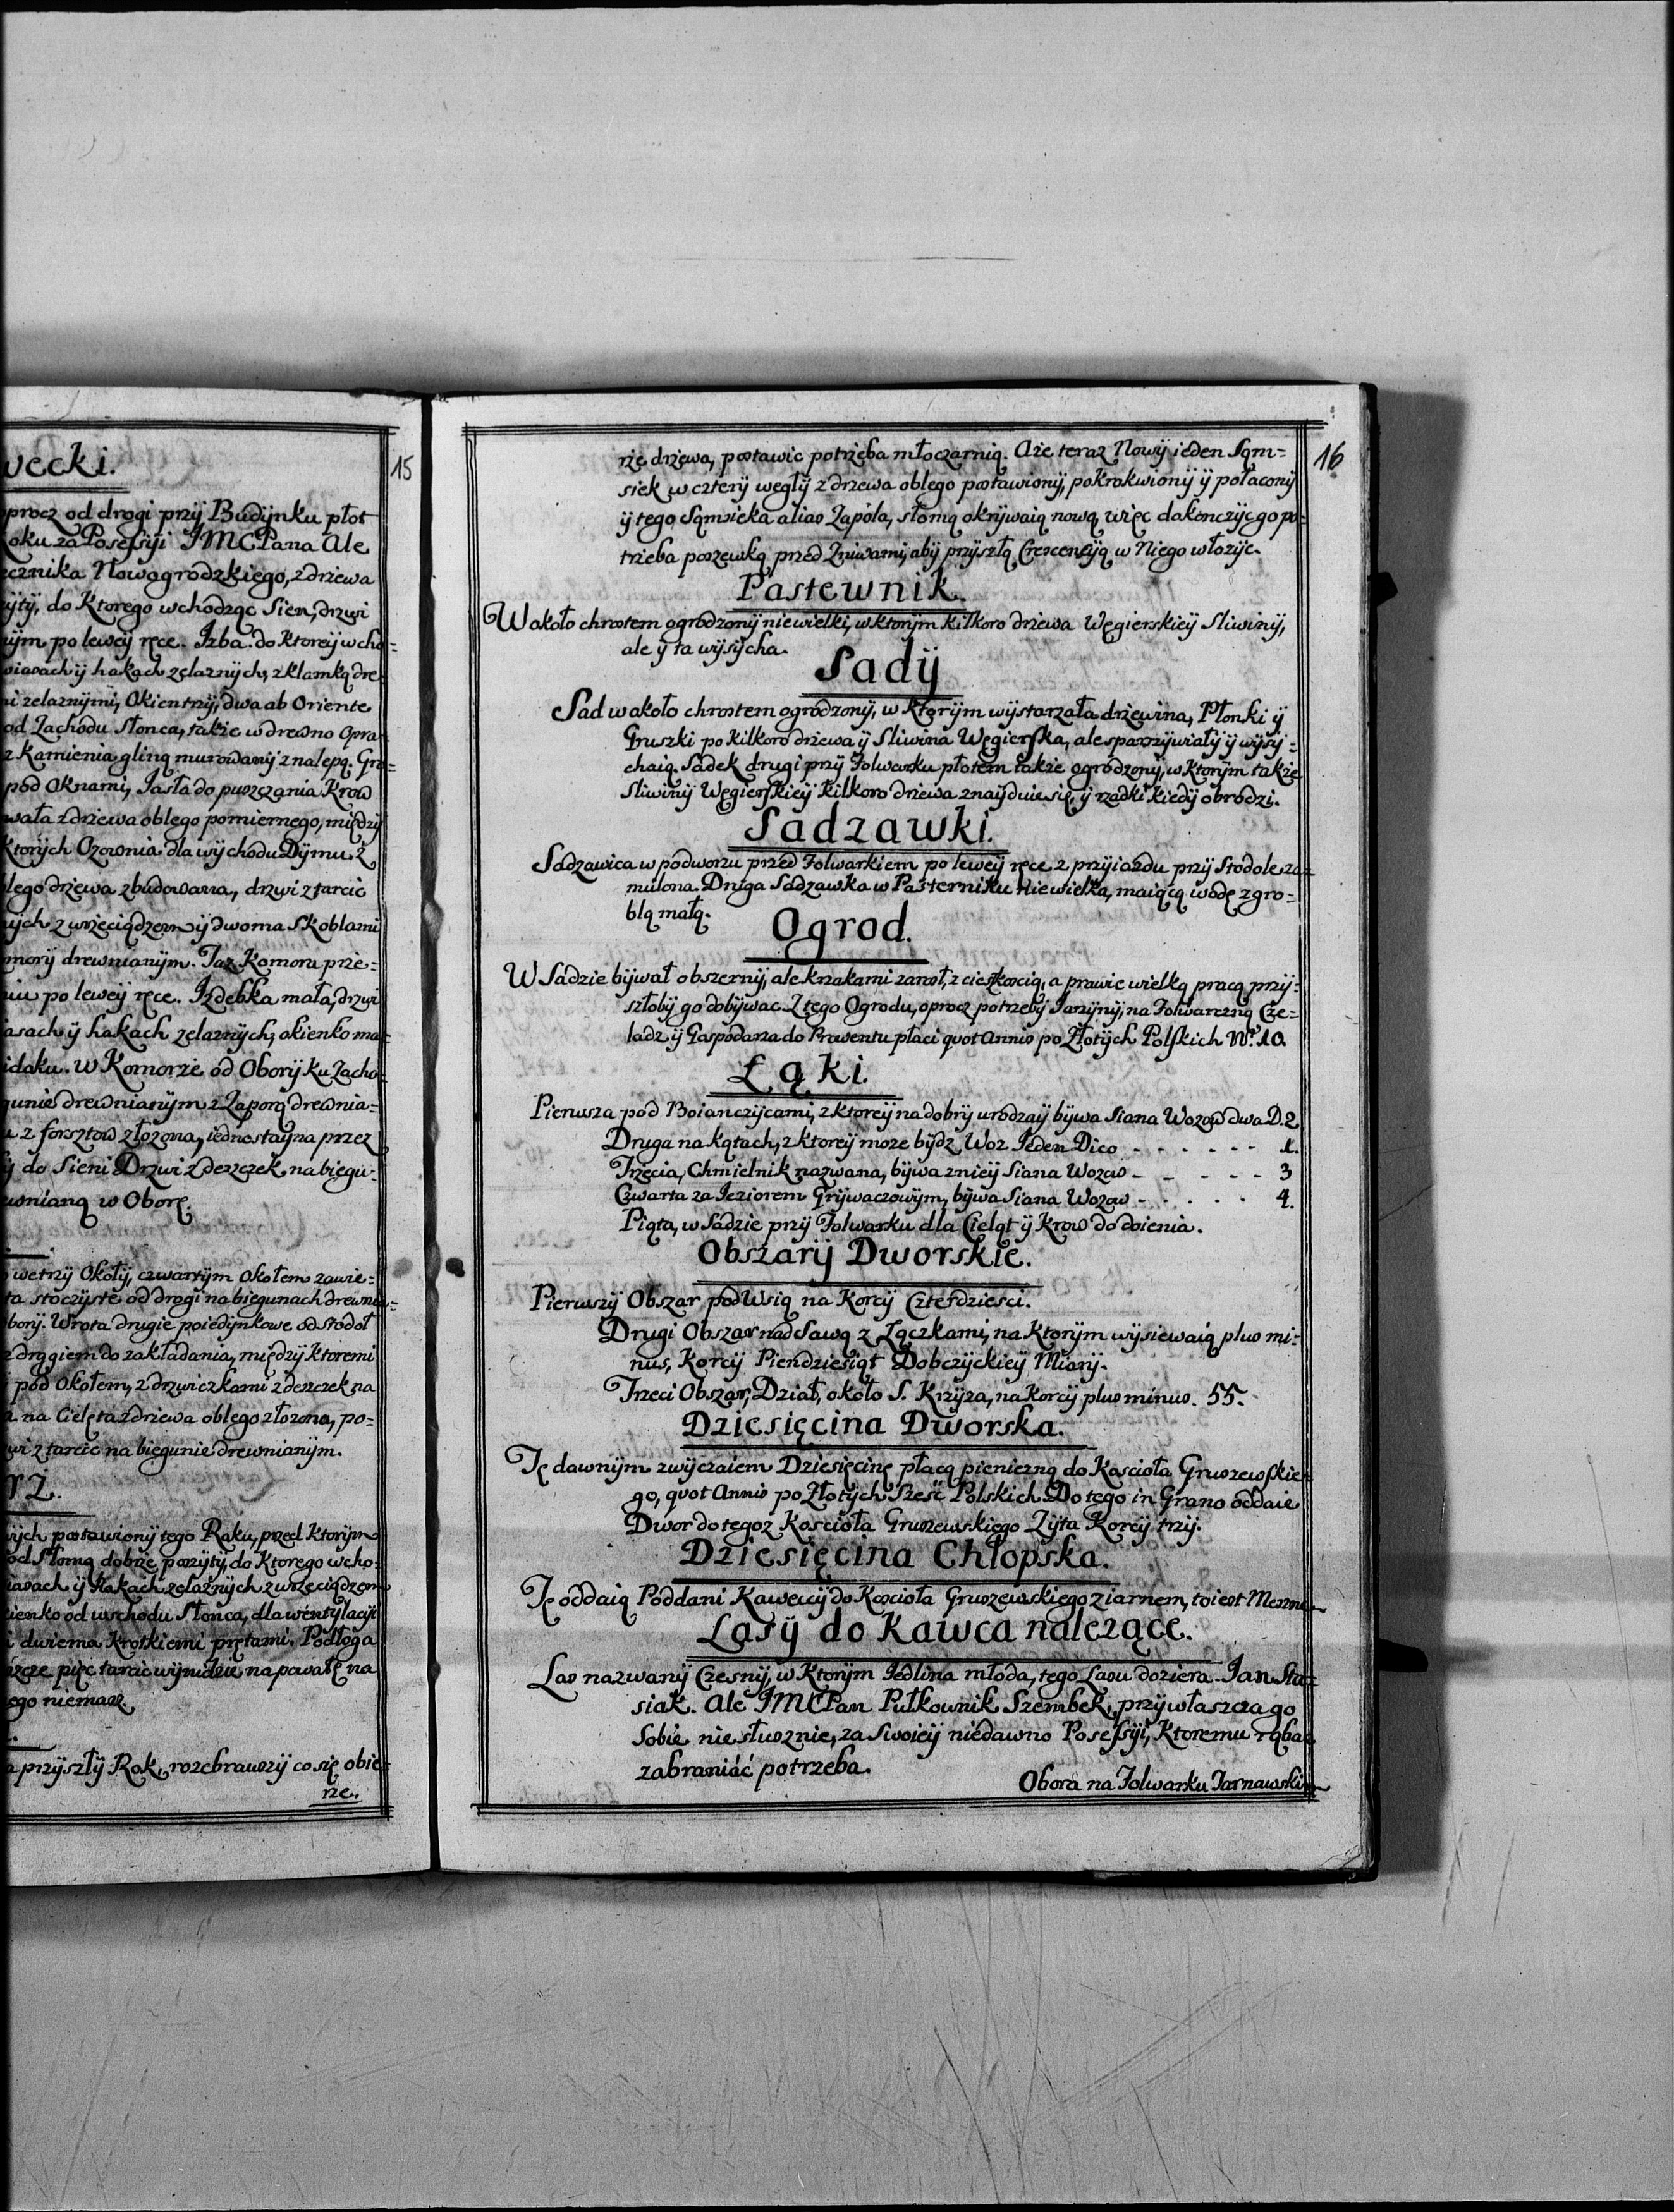 wecki.
15
oprocz od drogi przÿ Budÿnku płot
oku za Possessÿi JMCPana Ale
ecznika Nowogrodzkiego, z drzewa
ÿtÿ, do Ktorego wchodząc Sien, drzwi
ÿm po leweÿ ręce. Izba do Ktoreÿ wcho=
wiasach ÿ hakach zelaznÿch, z klamką dre
i zelaznÿmi, Okien trzÿ, dwa ab Oriente
od Zachodu Słonca, takze w drewno Opra
z Kamienia gliną murowanÿ z nalepą. Gro=
pod Oknami, Jasła do puszczania Krow
wała z drzewa oblego pomiernego, międzÿ
Ktorÿch Ozownia dla wÿchodu Dÿmu. Z
lego drzewa zbudowana, drzwi z tarcic
ÿch z wrzeciądzem ÿ dwoma Skoblami
morÿ drewnianÿm. Taz Komora prze=
niu po leweÿ ręce. Izdebka mała, drzwi
asach ÿ hakach zelaznÿch, okienko ma=
idaku. W Komorze od Oborÿ ku Zacho=
gunie drewnianÿm z Zaporą drewnia=
z forsztow złozona, iednostaÿna przez
ÿ do Sieni Drzwi z deszczek na biegu=
ewnianą w Oborę.
wetrzÿ Okołÿ, czwartÿm Okołem zawie=
ta stoczÿste od drogi na biegunach drewnia=
borÿ. Wrota drugie poiedÿnkowe od Stodoł
z drągiem do zakładania, międzÿ Ktoremi
pod Okołem, z drzwiczkami z deszczek na
a na Cielęta z drzewa oblego złozona, po=
wi z tarcic na biegunie drewnianÿm.
rz.
ÿch postawionÿ tego Roku, przed Ktorÿm
od Słomą dobrze poszÿtÿ, do Ktorego wcho=
iasach ÿ hakach zelaznÿch z wrzeciądzem
ienko od wschodu Słonca, dla wentÿlacÿi
i dwiema Krotkiemi prętami. Podłoga
szcze pięc tarcic wÿnidzie na powałę na
ego niemasz.
a przÿszłÿ Rok, rozebrawszÿ co się obie=
rze.
16
rze drzewa, postawic potrzeba młoczarnią. Aże teraz Nowÿ ieden Sąm=
siek w czterÿ węgłÿ z drzewa oblego postawionÿ, pokrokwionÿ ÿ połaconÿ
ÿ tego Sąmsieka alias Zapola, słomą okrÿwaią nową, więc dakonczÿc go po=
trzeba poszewką przed Zniwami, abÿ przÿszłą Crescencÿą w Niego włozÿc.
Pastewnik.
W około chrostem ogrodzonÿ niewielki, w ktorÿm kilkoro drzewa Węgierskieÿ Sliwinÿ,
ale ÿ ta wÿsÿcha.
Sadÿ
Sad w około chrostem ogrodzonÿ, w Ktorÿm wÿstarzała drzewina, Płonki ÿ
Gruszki po kilkoro drzewa ÿ Sliwina Węgierska, ale sparszÿwiałÿ ÿ wÿsÿ=
chaią. Sadek drugi przÿ Folwarku płotem takze ogrodzonÿ, w Ktorÿm takze
Sliwinÿ Węgierskieÿ kilkoro drzewa znaÿduie się, ÿ rzadki kiedÿ obrodzi.
Sadzawki.
Sadzawica w podworzu przed Folwarkiem po leweÿ ręce z przÿiazdu przÿ Stodole za=
mulona. Druga Sadzawka w Pasterniku niewielka, maiącą wodę z gro=
blą małą.
Ogrod.
W Sadzie bÿwał obszernÿ, ale krzakami zarosł, z cieszkoscią, a prawie wielką pracą przÿ=
szłobÿ go dobÿwac. Z tego Ogrodu, oprocz potrzebÿ Jarzÿnÿ, na Folwarczną Cze=
ladz ÿ Gospodarza do Prowentu płaci quot Annis po Złotÿch Polskich No. 10.
Łąki.
Pierwsza pod Boianczÿcami, z Ktoreÿ na dobrÿ urodzaÿ bÿwa Siana Wozow dwa D. 2.
Druga na kątach, z Ktoreÿ moze bÿdz Woz Jeden Dico - - - - - - 1.
Trzecia, Chmielnik nazwana, bÿwa z nieÿ Siana Wozow - - - - - 3
Czwarta za Jeziorem Grÿwaczowÿm, bÿwa Siana Wozow - - - - - 4.
Piąta, w Sadzie przÿ Folwarku dla Cieląt ÿ Krow do doienia.
Obszarÿ Dworskie.
Pierwszÿ Obszar pod Wsią na Korcÿ Czterdziesci.
Drugi Obszar nad Sawą z Łączkami, na Ktorÿm wÿsiewaią plus mi=
nus, Korcÿ Piendziesiąt Dobczÿckieÿ Miarÿ.
Trzeci Obszar, Dział, około S. Krzÿza, na Korcÿ plus minus. 55.
Dziesięcina Dworska.
Tę dawnÿm zwÿczaiem Dziesięcinę płacą pieniezną do Koscioła Gruszewskie=
go, quot Annis po Złotÿch Sześć Polskich. Do tego in Grano oddaie
Dwor do tegoz Koscioła Gruszewskiego Zÿta Korcÿ trzÿ.
Dziesięcina Chłopska.
Tę oddaią Poddani Kaweccÿ do Koscioła Gruszewskiego ziarnem, to iest Meszne.
Lasÿ do Kawca nalezące.
Las nazwanÿ Czesnÿ, w Ktorÿm Jedlina młoda, tego Lasu doziera Jan Sta=
siak. Ale JMCPan Pułkownik Szembek, przÿwłaszcza go
Sobie nie słusznie, za Swoieÿ niedawno Possessÿi, Ktoremu rąbac
zabraniáć potrzeba.
Obora na Folwarku Tarnawskim